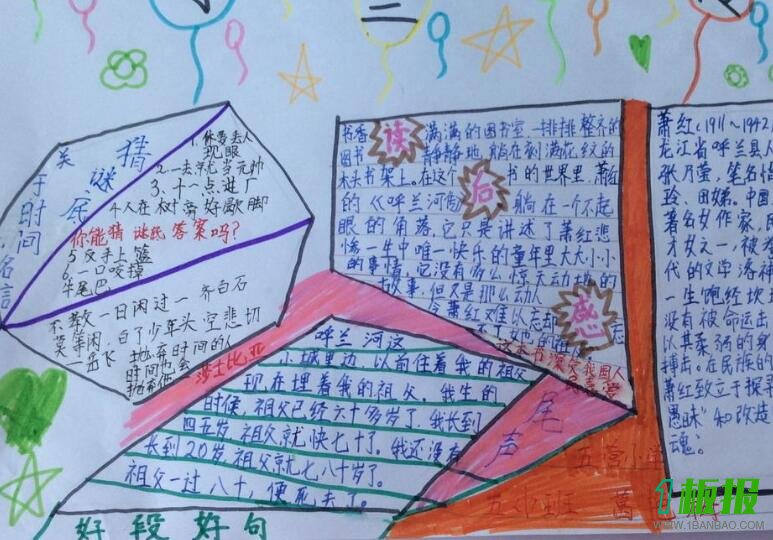 二
猜谜底
1.休要丢人现眼
2.一去就当元帅
3.十一点进厂
4.人在树旁好歇脚
你能猜谜底答案吗?
5.反手上篮
6.一口咬掉牛尾巴
关于时间名言
不教一日闲过 齐白石
等闲,白了少年头,空悲切
抛弃时间的人
时间也会
莎士比亚
读后感
书香满满的图书室,一排排整齐的
图书静静地躺在刻满花纹的
木头书架上。在这个书的世界里,萧红
的《呼兰河传》躺在一个不起
眼的角落,它只是讲述了萧红悲
惨一生中唯一快乐的童年里大大小小
的事情,它没有那么惊天动地的
故事,但又是那么动人
令萧红难以忘却
呼兰河这
小城里边,以前住着我的祖父
现在埋着我的祖父。我生的
时候,祖父已经六十多岁了,我长到
四五岁,祖父就快七十了。我还没有
长到20岁,祖父就七八十岁了。
祖父一过八十,便死去了。
好段好句
尾声
五营小学
萧红(1911~1942
龙江省呼兰县人
张乃莹,笔名悄
玲、田娣。中国
著名女作家,民
才女之一被
代的文学洛神
一生饱经坎
没有被命运
以其柔弱的身
搏击。在民族的
萧红致立于探寻
愚昧"和改造
魂。
1板报
WWW.1BANBAO.COM